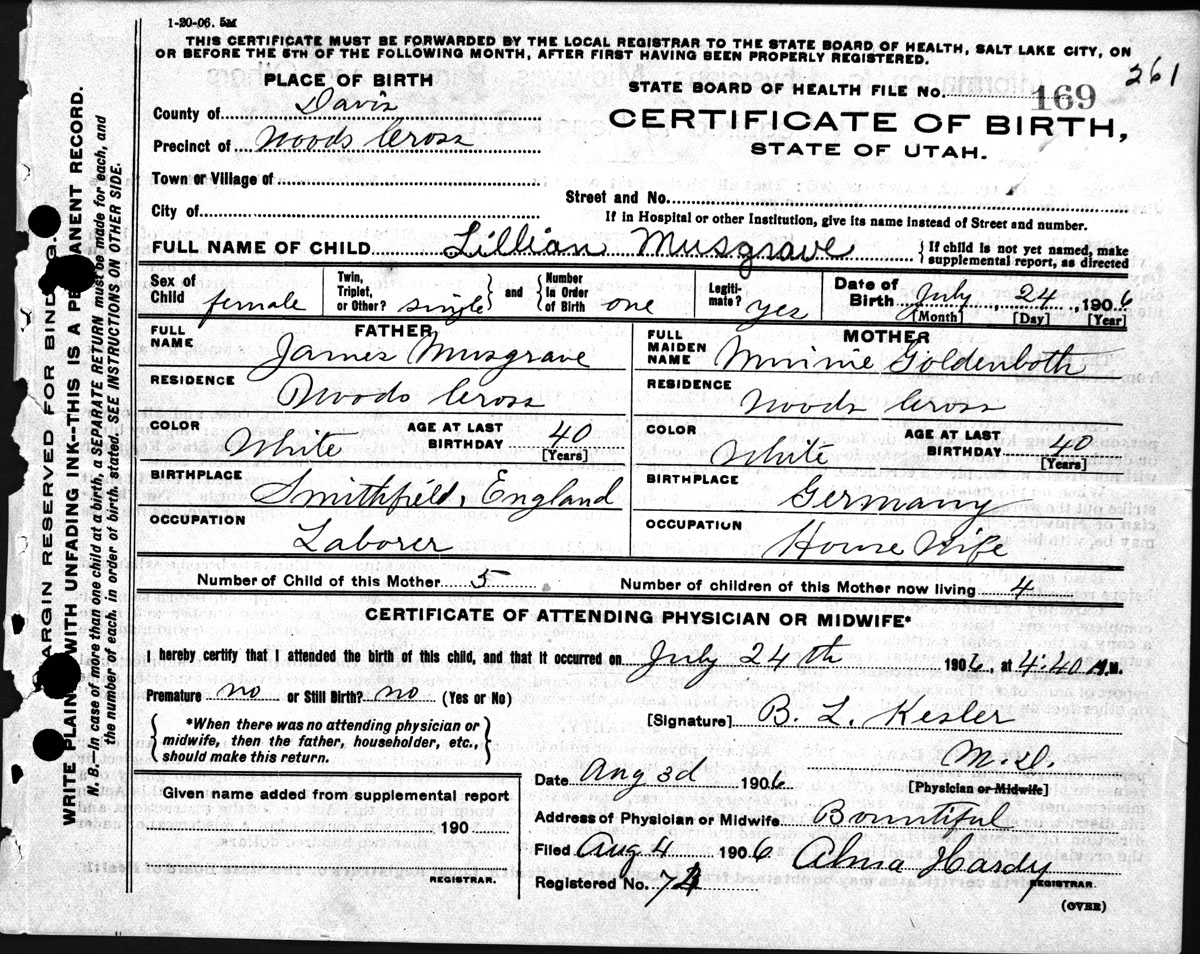 1-20-06. 5M
THIS CERTIFICATE MUST BE FORWARDED BY THE LOCAL REGISTRAR TO THE STATE BOARD OF HEALTH, SALT LAKE CITY, ON
OR BEFORE THE 5TH OF THE FOLLOWING MONTH, AFTER FIRST HAVING BEEN PROPERLY REGISTERED.
261
PLACE OF BIRTH
STATE BOARD OF HEALTH FILE No. 169
County of Davis
CERTIFICATE OF BIRTH,
Precinct of Woods Cross
STATE OF UTAH.
Town or Village of
Street and No.
City of
If in Hospital or other Institution, give its name instead of Street and number.
FULL NAME OF CHILD Lillian Musgrave { If child is not yet named, make
supplemental report, as directed
Sex of Child female
Twin, Triplet, or Other? single } and { Number in Order of Birth one
Legiti- mate? yes
Date of Birth July 24, 1906
[Month] [Day] [Year]
FATHER
FULL NAME James Musgrave
RESIDENCE Woods Cross
COLOR White AGE AT LAST BIRTHDAY 40
[Years]
BIRTHPLACE Smithfield, England
OCCUPATION Laborer
MOTHER
FULL MAIDEN NAME Minnie Goldenboth
RESIDENCE Woods Cross
COLOR White AGE AT LAST BIRTHDAY 40
[Years]
BIRTHPLACE Germany
OCCUPATION House Wife
Number of Child of this Mother 5
Number of children of this Mother now living 4
CERTIFICATE OF ATTENDING PHYSICIAN OR MIDWIFE*
I hereby certify that I attended the birth of this child, and that it occurred on July 24th 1906, at 4:40 A.M.
Premature no or Still Birth? no (Yes or No)
{ *When there was no attending physician or
midwife, then the father, householder, etc.,
should make this return. }
[Signature] B. L. Kesler
M.D.
[Physician or Midwife]
Date Aug 3d 1906
Address of Physician or Midwife Bountiful
Filed Aug 4 1906 Alma Hardy
REGISTRAR.
Registered No. 74
(OVER)
Given name added from supplemental report
190
REGISTRAR.
MARGIN RESERVED FOR BINDING.
WRITE PLAINLY WITH UNFADING INK--THIS IS A PERMANENT RECORD.
N. B.—In case of more than one child at a birth, a SEPARATE RETURN must be made for each, and
the number of each, in order of birth, stated. SEE INSTRUCTIONS ON OTHER SIDE.